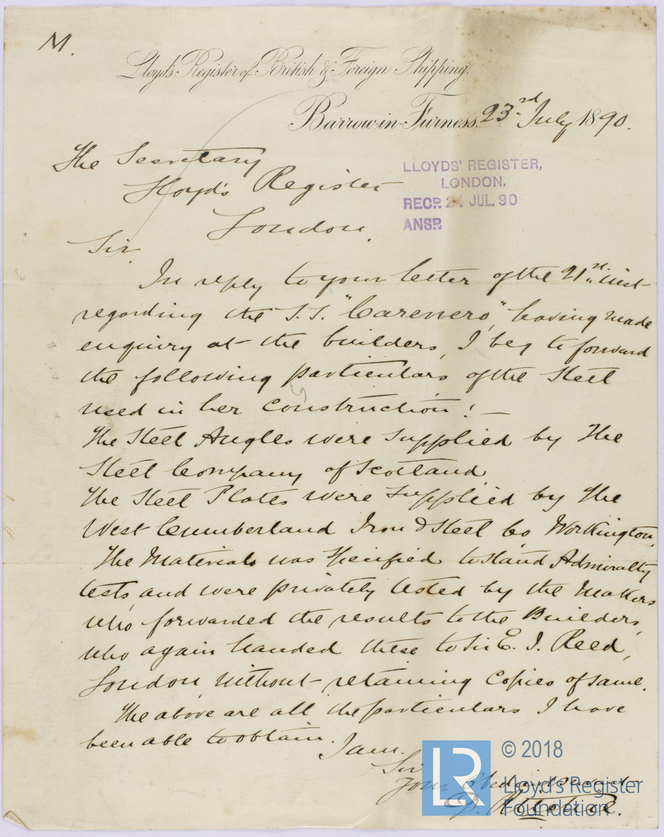 M.
Lloyd's Register of British & Foreign Shipping.
Barrow-in-Furness. 23rd July 1890.
The Secretary
Lloyd's Register
London.
LLOYDS' REGISTER,
LONDON.
RECD. 24 JUL 90
ANSD.
Sir
In reply to your letter of the 21st inst
regarding the S.S. "Carenero", having made
enquiry at the builders, I beg to forward
the following particulars of the Steel
used in her construction:—
The Steel Angles were supplied by The
Steel Company of Scotland,
The Steel Plates were supplied by The
West Cumberland Iron & Steel Co Workington,
The Materials was specified to stand Admiralty
tests, and were privately tested by the Makers
who forwarded the results to the Builders,
who again handed these to Sir E. J. Reed,
London without retaining Copies of same.
The above are all the particulars I have
been able to obtain.
I am.
Sir
Your
© 2018
Lloyd's Register
Foundation
LR